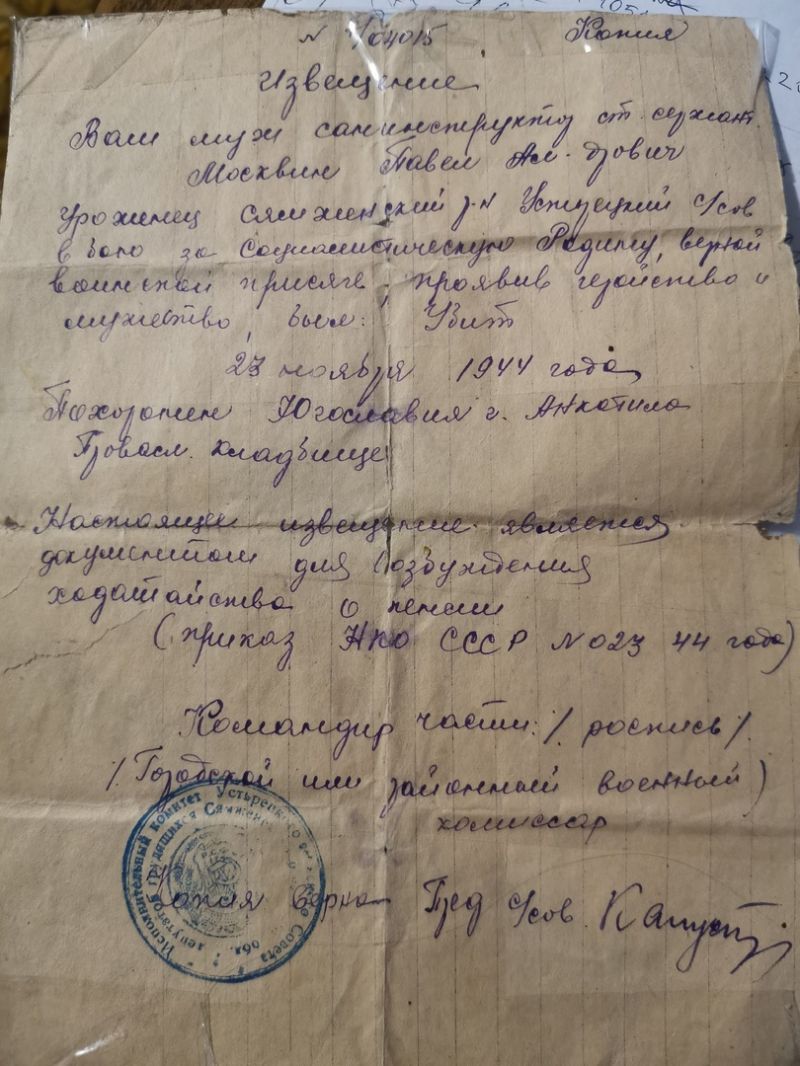 N 1/04015 Копия
Извещение
Ваш муж санинструктор ст. сержант.
Москвин Павел Ал-дрович
Уроженец Сямженский р-н Устрецкий с/сов
в бою за Социалистическую Родину, верной
воинской присяге, проявив геройство и
мужество, был: Убит
23 ноября 1944 года
Похоронен Югославия г. Апкотила
Правосл. кладбище
Настоящее извещение является
документом для возбуждения
ходатайства о пенсии
(приказ НКО СССР N 023 44 года)
Командир части: /. роспись /.
/ Городской или районный военный)
комиссар
Копия верна Пред с/сов. Капуст
Исполнительный комитет Устьрецкого Совета
депутатов трудящихся обл.